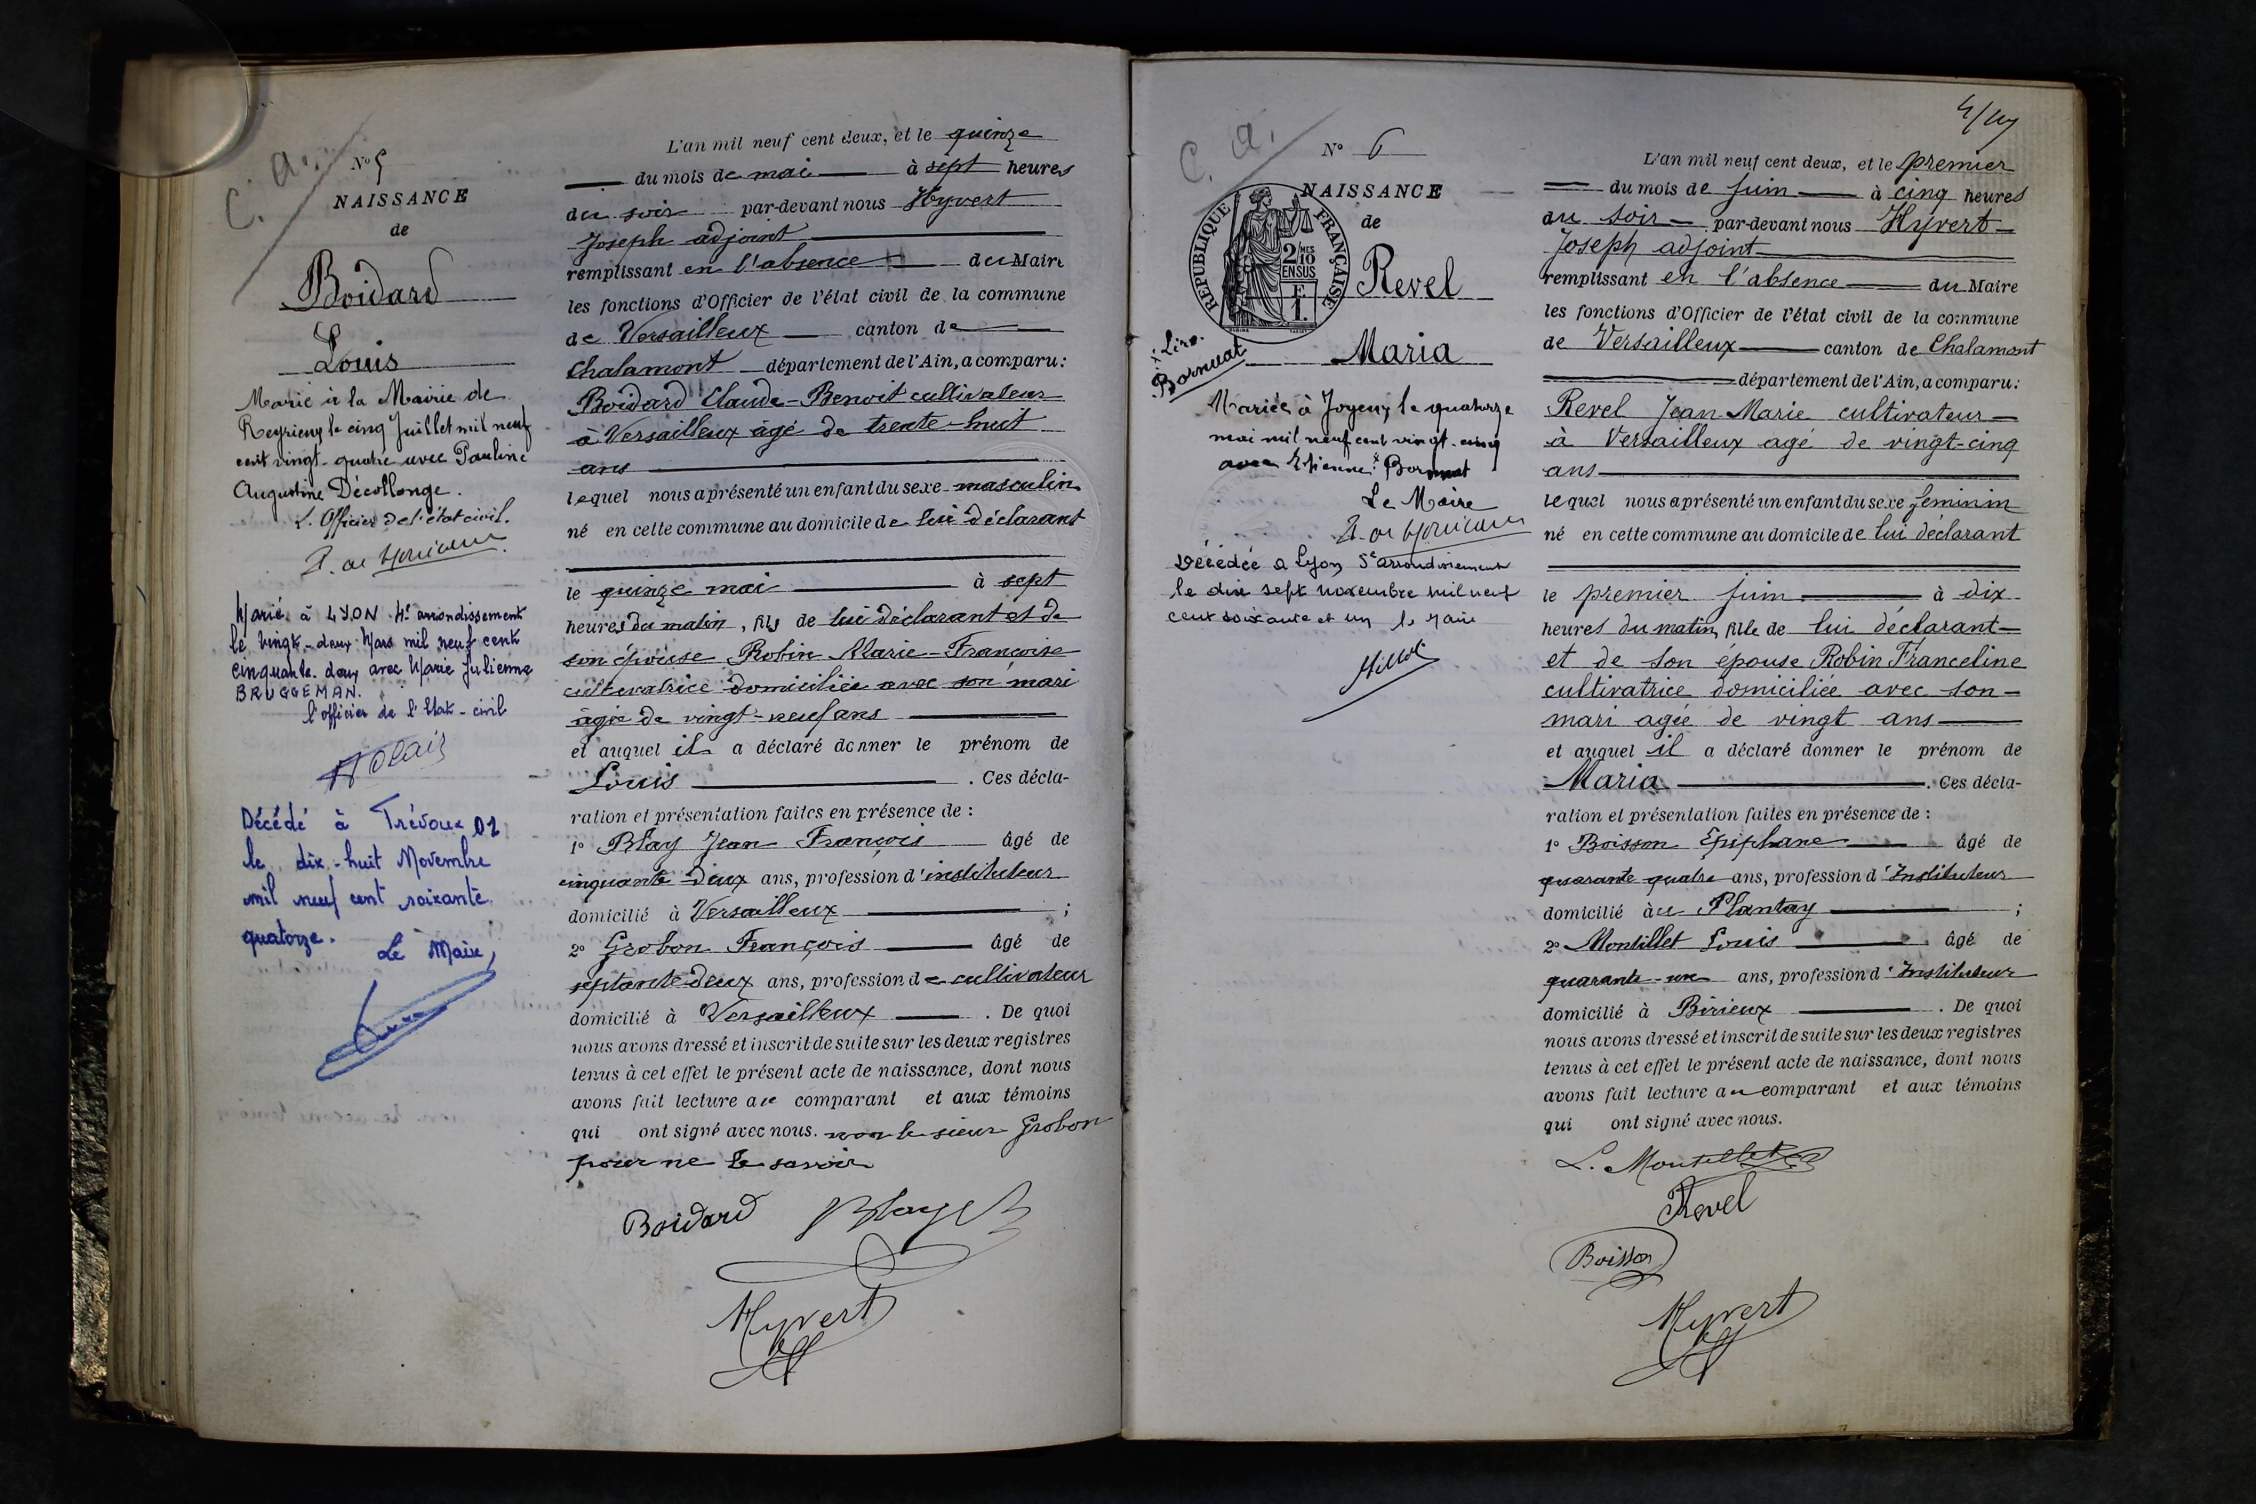 C. a.
N° 5
NAISSANCE
de
Boidard
Louis
Marié à la Mairie de
Reyrieux le cinq Juillet mil neuf
cent vingt-quatre avec Pauline
Augustine Décollonge.
L'Officier de l'état civil.
Marié à LYON 4e arrondissement
le vingt-deux Mars mil neuf cent
cinquante-deux avec Marie Julienne
BRUGGEMAN.
l'officier de l'Etat-civil
Décédé à Trévoux 01
le dix-huit Novembre
mil neuf cent soixante
quatorze.
Le Maire,
L'an mil neuf cent deux, et le quinze
du mois de mai à sept heures
du soir par-devant nous Hyvert
Joseph adjoint
remplissant en l'absence du Maire
les fonctions d'Officier de l'état civil de la commune
de Versailleux canton de
Chalamont département de l'Ain, a comparu :
Boidard Claude-Benoit cultivateur
à Versailleux âgé de trente-huit
ans
lequel nous a présenté un enfant du sexe masculin
né en cette commune au domicile de lui déclarant
le quinze mai à sept
heures du matin, fils de lui déclarant et de
son épouse Robin Marie-Françoise
cultivatrice domiciliée avec son mari
âgée de vingt-neuf ans
et auquel il a déclaré donner le prénom de
Louis . Ces décla-
ration et présentation faites en présence de :
1° Blay Jean François âgé de
cinquante-deux ans, profession d'instituteur
domicilié à Versailleux ;
2° Grobon François âgé de
septante-deux ans, profession de cultivateur
domicilié à Versailleux . De quoi
nous avons dressé et inscrit de suite sur les deux registres
tenus à cet effet le présent acte de naissance, dont nous
avons fait lecture au comparant et aux témoins
qui ont signé avec nous. non le sieur Grobon
pour ne le savoir
Boidard Blay
Hyvert
4/
C. a.
N° 6
NAISSANCE
de
RÉPUBLIQUE FRANÇAISE
2/10 MES
EN SUS
F
1.
Revel
Maria
x Lire
Bornuat
Mariée à Joyeux le quatorze
mai mil neuf cent vingt-cinq
avec Etienne x Bornuat
Le Maire
Décédée à Lyon 5e arrondissement
le dix sept novembre mil neuf
cent soixante et un le Maire
L'an mil neuf cent deux, et le premier
du mois de Juin à cinq heures
du soir par-devant nous Hyvert
Joseph adjoint
remplissant en l'absence du Maire
les fonctions d'Officier de l'état civil de la commune
de Versailleux canton de Chalamont
département de l'Ain, a comparu :
Revel Jean Marie cultivateur
à Versailleux agé de vingt-cinq
ans
lequel nous a présenté un enfant du sexe feminin
né en cette commune au domicile de lui déclarant
le premier juin à dix
heures du matin, fille de lui déclarant
et de son épouse Robin Franceline
cultivatrice domiciliée avec son
mari agée de vingt ans
et auquel il a déclaré donner le prénom de
Maria . Ces décla-
ration et présentation faites en présence de :
1° Boisson Epiphane âgé de
quarante quatre ans, profession d'Instituteur
domicilié au Plantay ;
2° Montillet Louis âgé de
quarante-un ans, profession d'Instituteur
domicilié à Birieux . De quoi
nous avons dressé et inscrit de suite sur les deux registres
tenus à cet effet le présent acte de naissance, dont nous
avons fait lecture au comparant et aux témoins
qui ont signé avec nous.
L. Montillet
Revel
Boisson
Hyvert